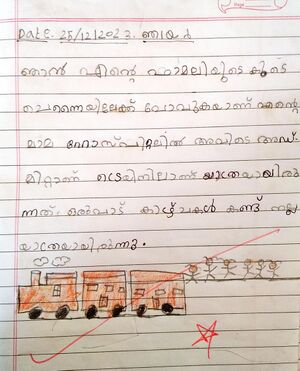 Date. 25/12/2022. ഞായർ
ഞാൻ എൻ്റെ ഫാമലിയുടെ കൂടെ
ചെന്നൈയിലേക്ക് പോവുകയാണ് എൻ്റെ
മാമ ഹോസ്പിറ്റലിൽ അവിടെ അഡ്-
മിറ്റാണ് ട്രെയിനിലാണ് യാത്രയായിരു
ന്നത്. ഒരുപാട് കാഴ്ചകൾ കണ്ടു നല്ല
യാത്രയായിരുന്നു.